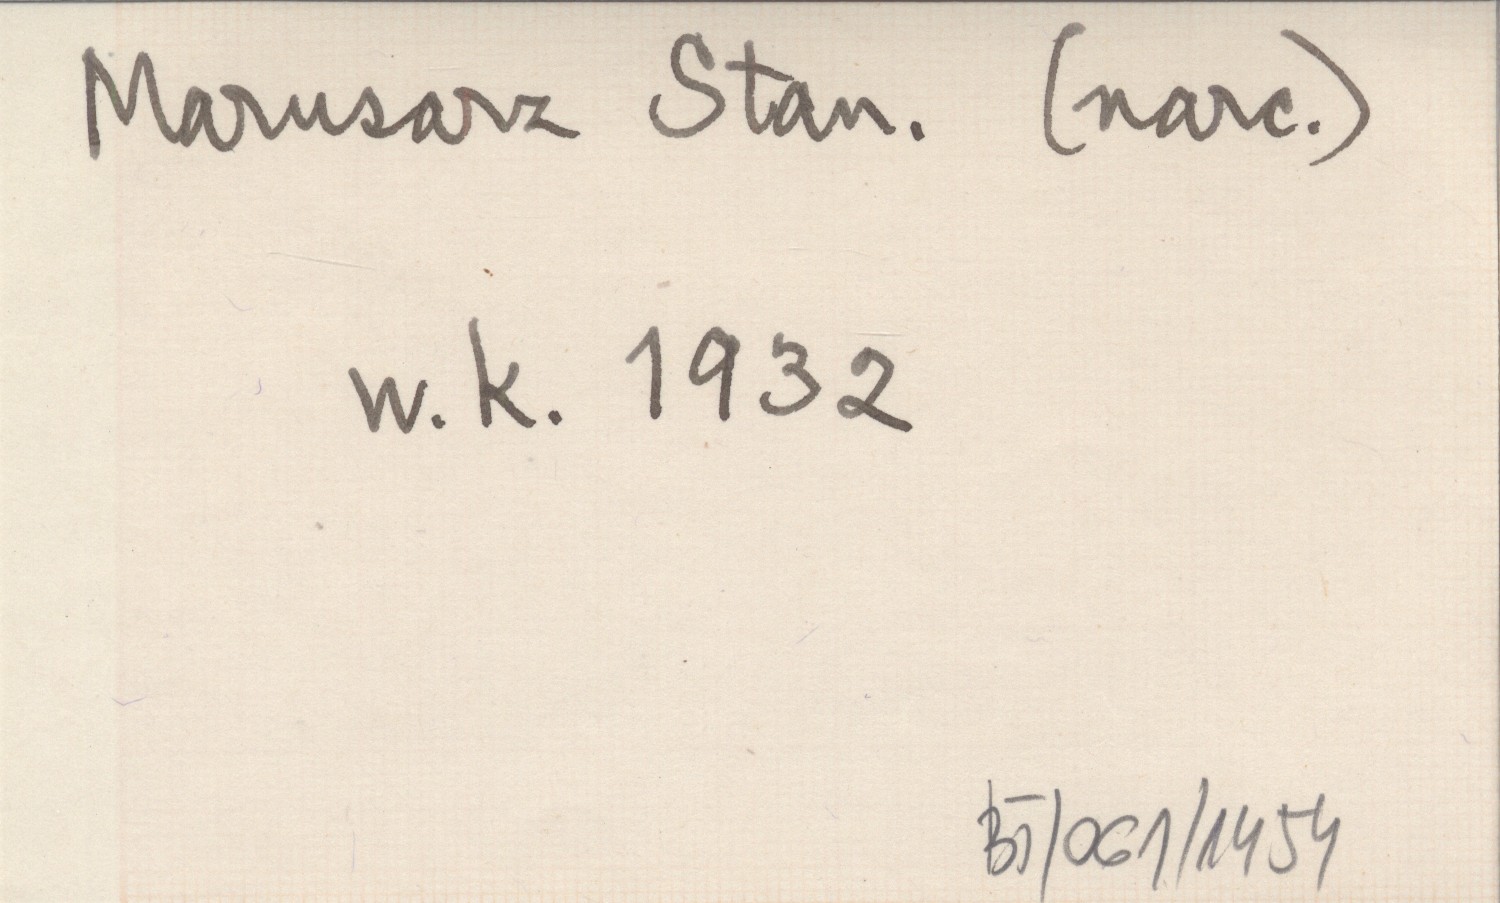 Marusarz Stan. (narc.)
w.k. 1932
BJ/061/1454